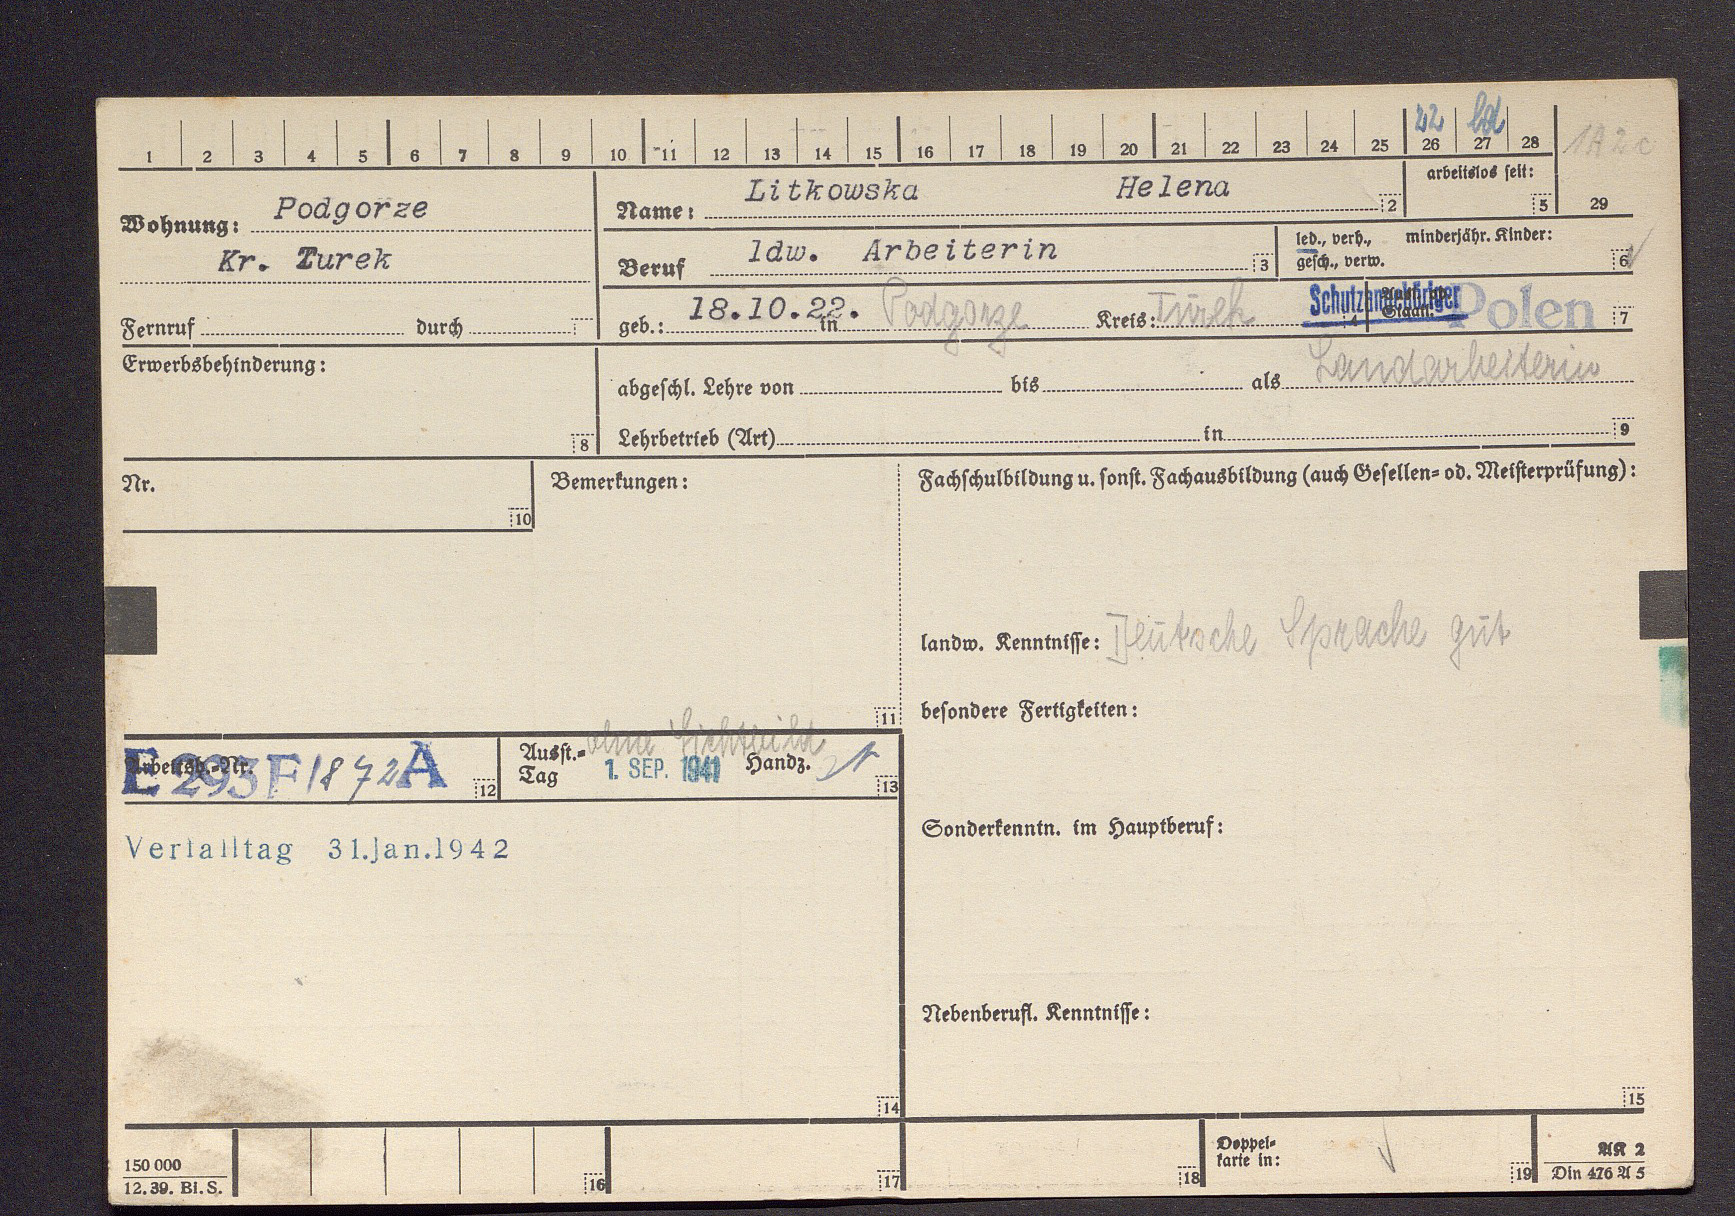 22 bd
1 2 3 4 5 6 7 8 9 10 11 12 13 14 15 16 17 18 19 20 21 22 23 24 25 26 27 28
1A2c
arbeitslos seit:
5
29
Wohnung: Podgorze
Kr. Turek
Name: Litkowska Helena
2
Beruf ldw. Arbeiterin
3
led., verh., minderjähr. Kinder:
gesch., verw.
6
Fernruf durch
geb.: 18.10.22. in Podgorze Kreis: Turek
4
Schutzangehöriger Polen
Staat:
7
Erwerbsbehinderung:
8
abgeschl. Lehre von bis als Landarbeiterin
Lehrbetrieb (Art) in
9
Nr.
10
Bemerkungen:
11
Fachschulbildung u. sonst. Fachausbildung (auch Gesellen= od. Meisterprüfung):
landw. Kenntnisse: Deutsche Sprache gut
besondere Fertigkeiten:
Arbeitsb.-Nr.
E 293F/872A
12
ohne Lichtbild
Ausst.=
Tag 1. SEP. 1941 Handz.
13
Verfalltag 31.Jan.1942
Sonderkenntn. im Hauptberuf:
Nebenberufl. Kenntnisse:
14
15
150 000
12. 39. Bi. S.
16
17
18
Doppel=
karte in:
19
AK 2
Din 476 A 5